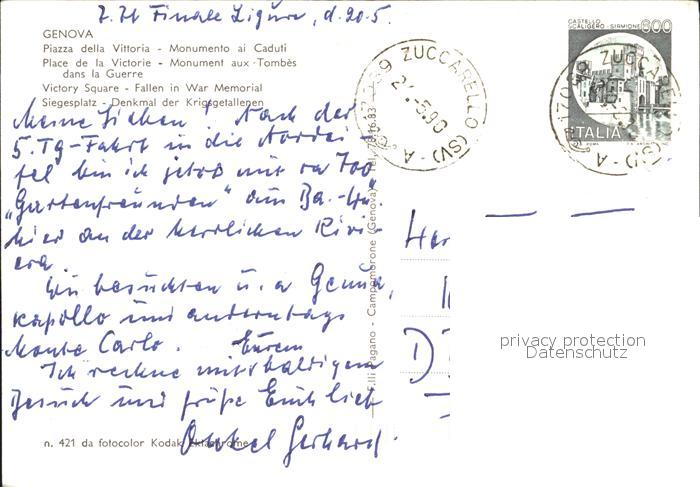 z. Zt Finale Ligure, d. 20.5.
GENOVA
Piazza della Vittoria - Monumento ai Caduti
Place de la Victorie - Monument aux Tombès
dans la Guerre
Victory Square - Fallen in War Memorial
Siegesplatz - Denkmal der Kriegsgetallenen
Meine Lieben! Nach der
5. Tg-Fahrt in die
bin ich jetzt mit ca 700
„Gartenfreunden" aus Ba.-Wü.
hier an der herrlichen Rivi-
era.
Wir besuchten u. a Genua,
Rapallo und anderntags
Monte Carlo. Eurem
Ich rechne mit baldigem
Besuch und grüße Euch lieb
Onkel Gerhard.
n. 421 da fotocolor Kodak Ektachrome
F.lli Pagano - Campomorone (Genova) Tel.
ZUCCARELLO (SV) - A
2 .-5.90
CASTELLO
SCALIGERO - SIRMIONE
600
ITALIA
ROMA
17039 ZUCCA
(SV) - A
Her
D
privacy protection
Datenschutz